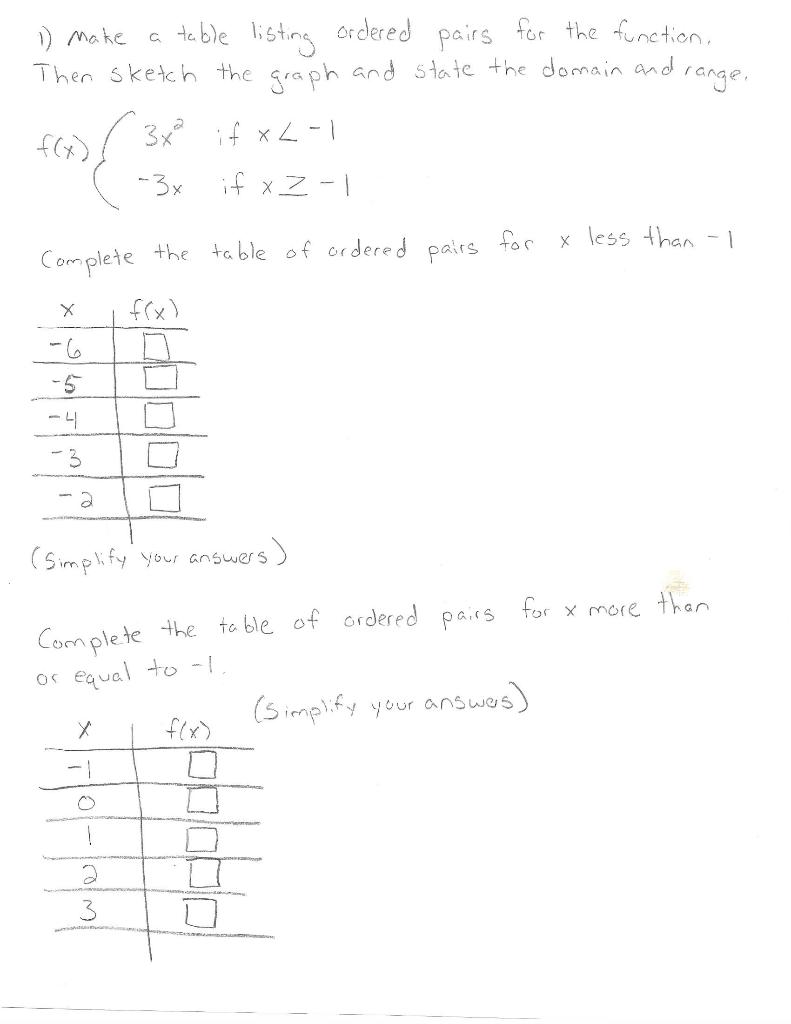 1) Make a table listing ordered pairs for the function.
Then sketch the graph and state the domain and range.
f(x) { 3x² if x < -1
-3x if x ≥ -1
Complete the table of ordered pairs for x less than -1
x f(x)
-6 □
-5 □
-4 □
-3 □
-2 □
(Simplify your answers)
Complete the table of ordered pairs for x more than
or equal to -1.
(Simplify your answes)
x f(x)
-1 □
0 □
1 □
2 □
3 □